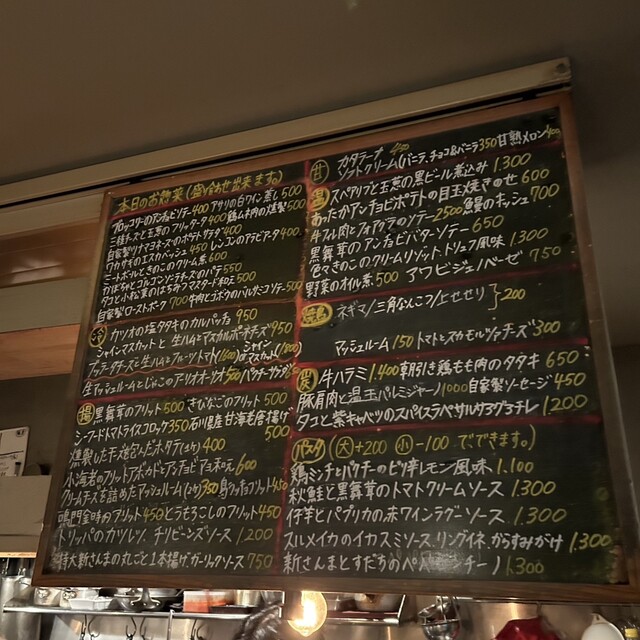 本日のお惣菜(盛り合わせ出来ます。)
ブロッコリーのアンチョビソテー400 アサリの白ワイン蒸し500
三種チーズと玉葱のフリッター400 鶏ムネ肉の燻製500
自家製ツナマヨネーズのポテトサラダ400
ワカサギのエスカベッシュ450 レンコンのアラビアータ400
ミートボールときのこのクリーム煮600
かぼちゃとゴルゴンゾーラチーズのパテ550
タコと小松菜のはちみつマスタード和え500
自家製ローストポーク700 牛肉とゴボウのバルサミコソテー500
冷
カツオの塩タタキのカルパッチョ950
シャインマスカットと生ハムとマスカルポーネチーズ950
ブッラータチーズと生ハムとフルーツトマト(1600)or(シャインマスカット)(1800)
生マッシュルームとじゃこのアリオオーリオ500
揚
黒舞茸のフリット500 きびなごのフリット500
シーフードトマトライスコロッケ350 石川産甘海老唐揚げ500
燻製した手ノ塩ひんだホタテ(1ケ)400
小海老のフリットアボカドとアンチョビマヨ和え600
クリームチーズを詰めたマッシュルーム(1ケ)350
鳴門金時のフリット450 とうもろこしのフリット450
トリッパのカツレツ、チリビーンズソース1200
特大新さんまの丸ごと1本揚げガーリックソース750
甘
カタラーナ400
ソフトクリーム(バニラ、チョコ&バニラ)350 甘熟メロン400
温
スペアリブと玉葱の黒ビール煮込み1.300
あったかアンチョビポテトの目玉焼きのせ600
牛フィレ肉とフォアグラのソテー2500 鰻のキッシュ700
黒舞茸のアンチョビバターソテー650
色々きのこのクリームリゾットトリュフ風味1.300
野菜のオイル煮500 アワビジェノベーゼ750
ネギマ/三角/こんこつ/せせり}200
マッシュルーム150 トマトとスカモルツァチーズ300
炭
牛ハラミ1.400 朝引き鶏もも肉のタタキ650
豚肩肉と温玉パルミジャーノ1000 自家製ソーセージ450
タコと紫キャベツのスパイスラペサルサフグラチレ1.200
パスタ(大+200 小-100でできます。)
鶏ミンチとパクチーのピリ辛レモン風味1.100
秋鮭と黒舞茸のトマトクリームソース1.300
仔羊とパプリカの赤ワインラグーソース1.300
スルメイカのイカスミソース、リングイネ、からすみがけ1.300
新さんまとすだちのペペロンチーノ1.300